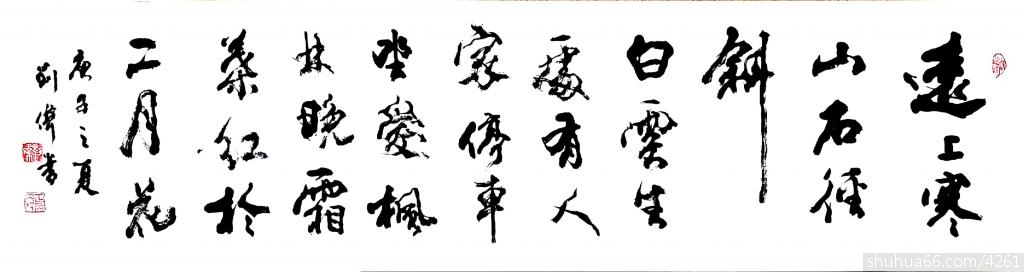 遠上寒
山石徑
斜
白雲生
處有人
家停車
坐愛楓
林晚霜
葉紅於
二月花
庚子之夏
劉偉書
shuhua66.com/4261